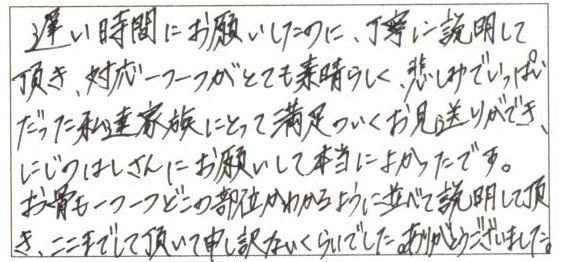 遅い時間にお願いしたのに、丁寧に説明して
頂き、対応一つ一つがとても素晴らしく、悲しみでいっぱい
だった私達家族にとって満足のいくお見送りができ、
にじのはしさんにお願いして本当によかったです。
お骨も一つ一つどこの部位かわかるように並べて説明して頂
き、ここまでして頂いて申し訳ないくらいでした。ありがとうございました。